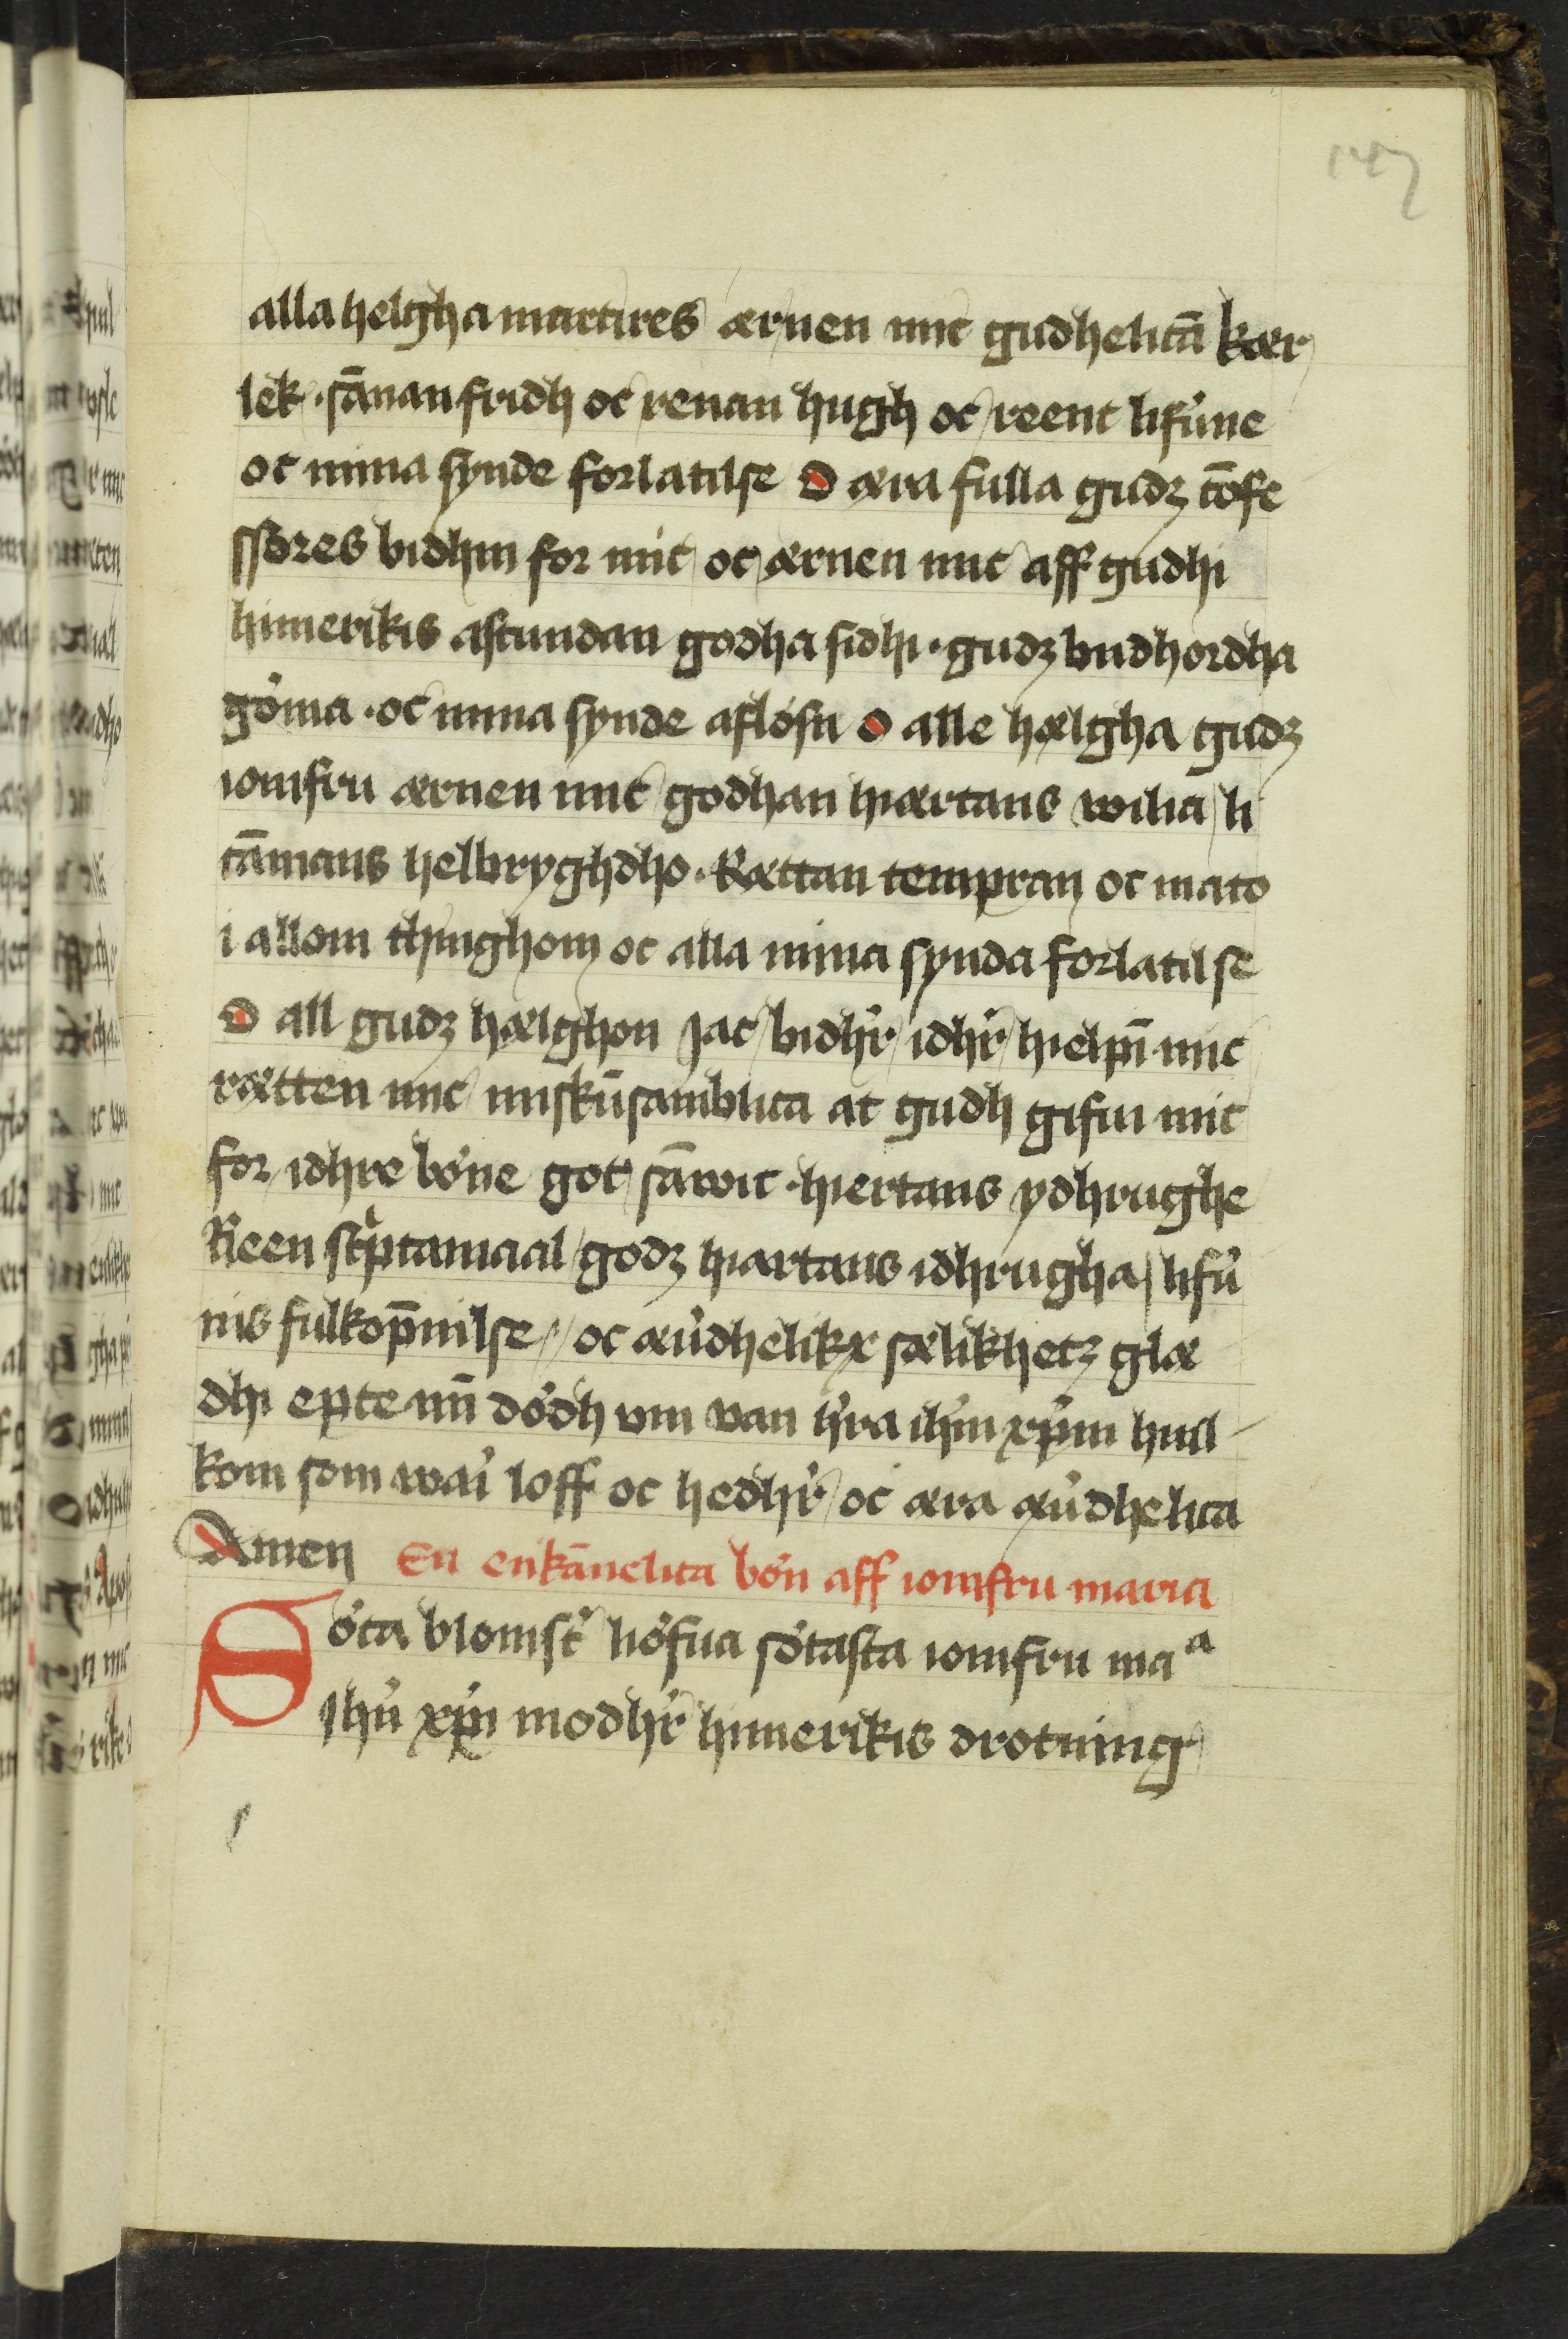 147
alla helgha martires ærnen mic gudhelicā kær
lek · sānan fridh oc renan hugh oc reent lifu͛ne
oc mina synde forlatilse O æra fulla gudz cōfe
ssores bidhin for mic oc ærnen mic aff gudhi
himerikis astundan godha sidhi · gudz budhordha
gøma · oc mina synde afløsn O alle hælgha gudz
iomfru ærnen mic godhan hiærtans wilia li
cāmans helbryghdho · Rættan tempran oc mato
i allom thinghom oc alla mina synda forlatilse
O all gudz hælghon Jac bidhr͛ idhr͛ hielpī mic
rætten mic miskūsamblica at gudh gifui mic
for idhre bøne got sāwit · hiertans ydhrughe
Reen scͥptamaal godz hiartans idhrugha lifu͛
nis fulkōpnilse oc æu͛dheliks sælikhetz glæ
dhi epte mī dødh vm van h͛ra ih͛m xp͛m huil
kom som wari loff oc hedhr͛ oc æra æu͛dhelica
Amen En enkānelica bøn aff iomfru maria
Søta blomst͛ liøfua søtasta iomfru maᵃ
Jhu͛ xp͛i modhr͛ himerikis drotning